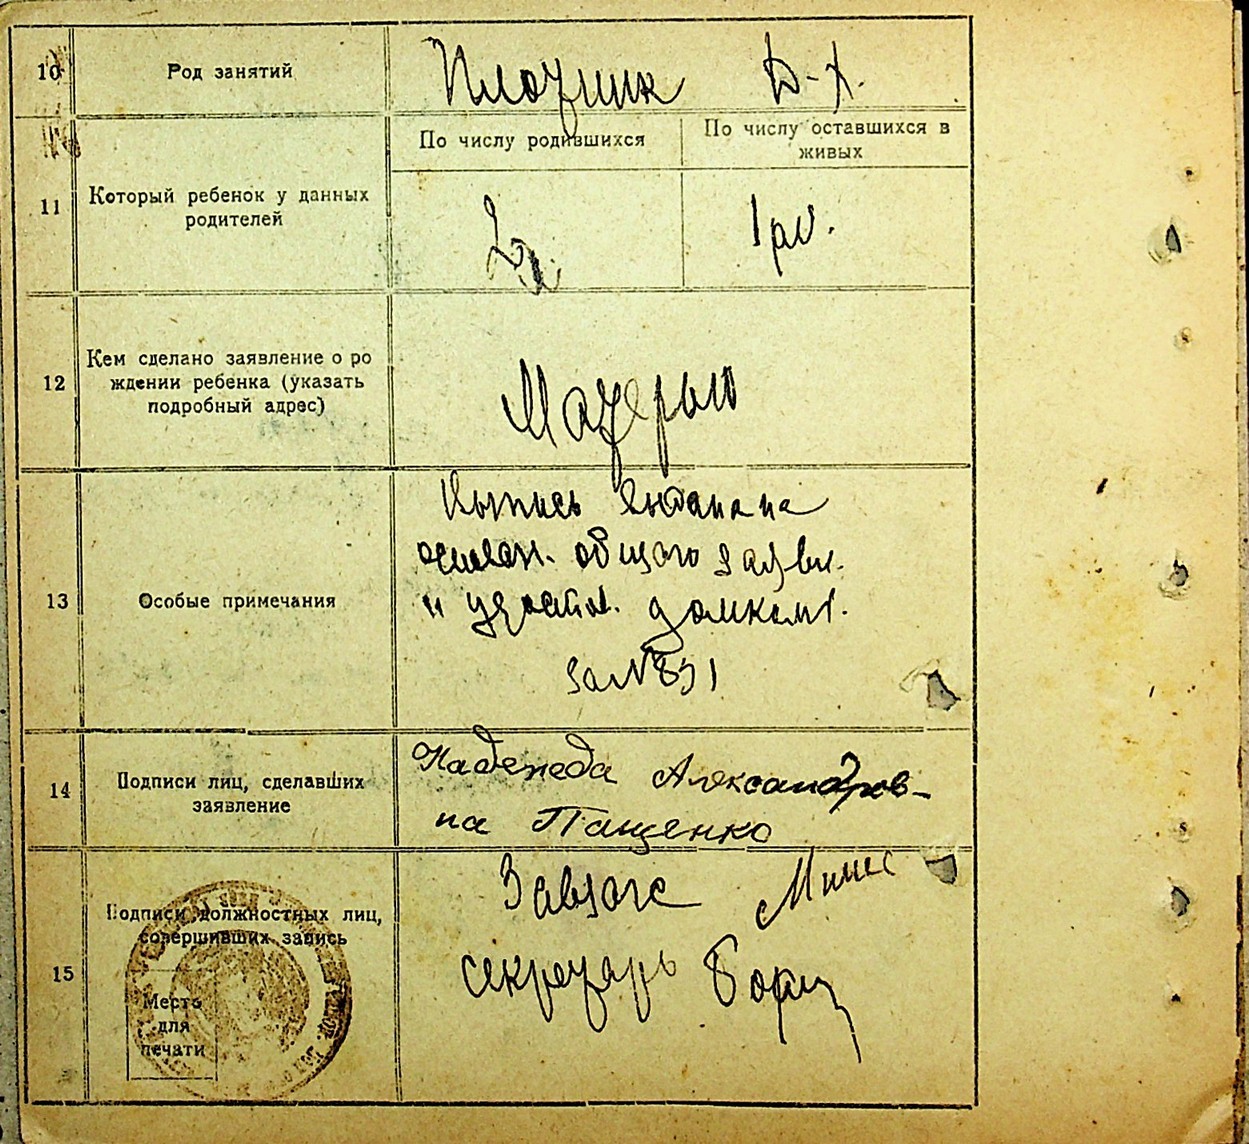 10 Род занятий Плотник Д-Х.
11 Который ребенок у данных
родителей
По числу родившихся
По числу оставшихся в
живых
2
1
12 Кем сделано заявление о ро
ждении ребенка (указать
подробный адрес)
Матерью
13 Особые примечания
общего заявл.
и домком.
за № 831
14 Подписи лиц, сделавших
заявление
Надежда Александров-
на Пащенко
15 Подписи должностных лиц,
совершивших запись
Место
для
печати
Завзагс
секретарь